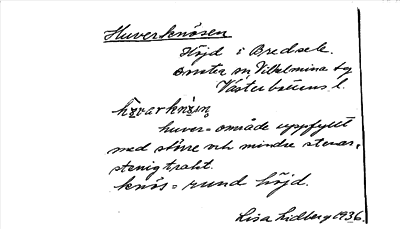 Huverknösen
Höjd i Bredsele.
omster om Vilhelmina by
Västerbottens l.
huver = område uppfyllt
med större och mindre stenar,
stenig trakt.
knös = rund höjd.
Lisa Lidberg 1936.